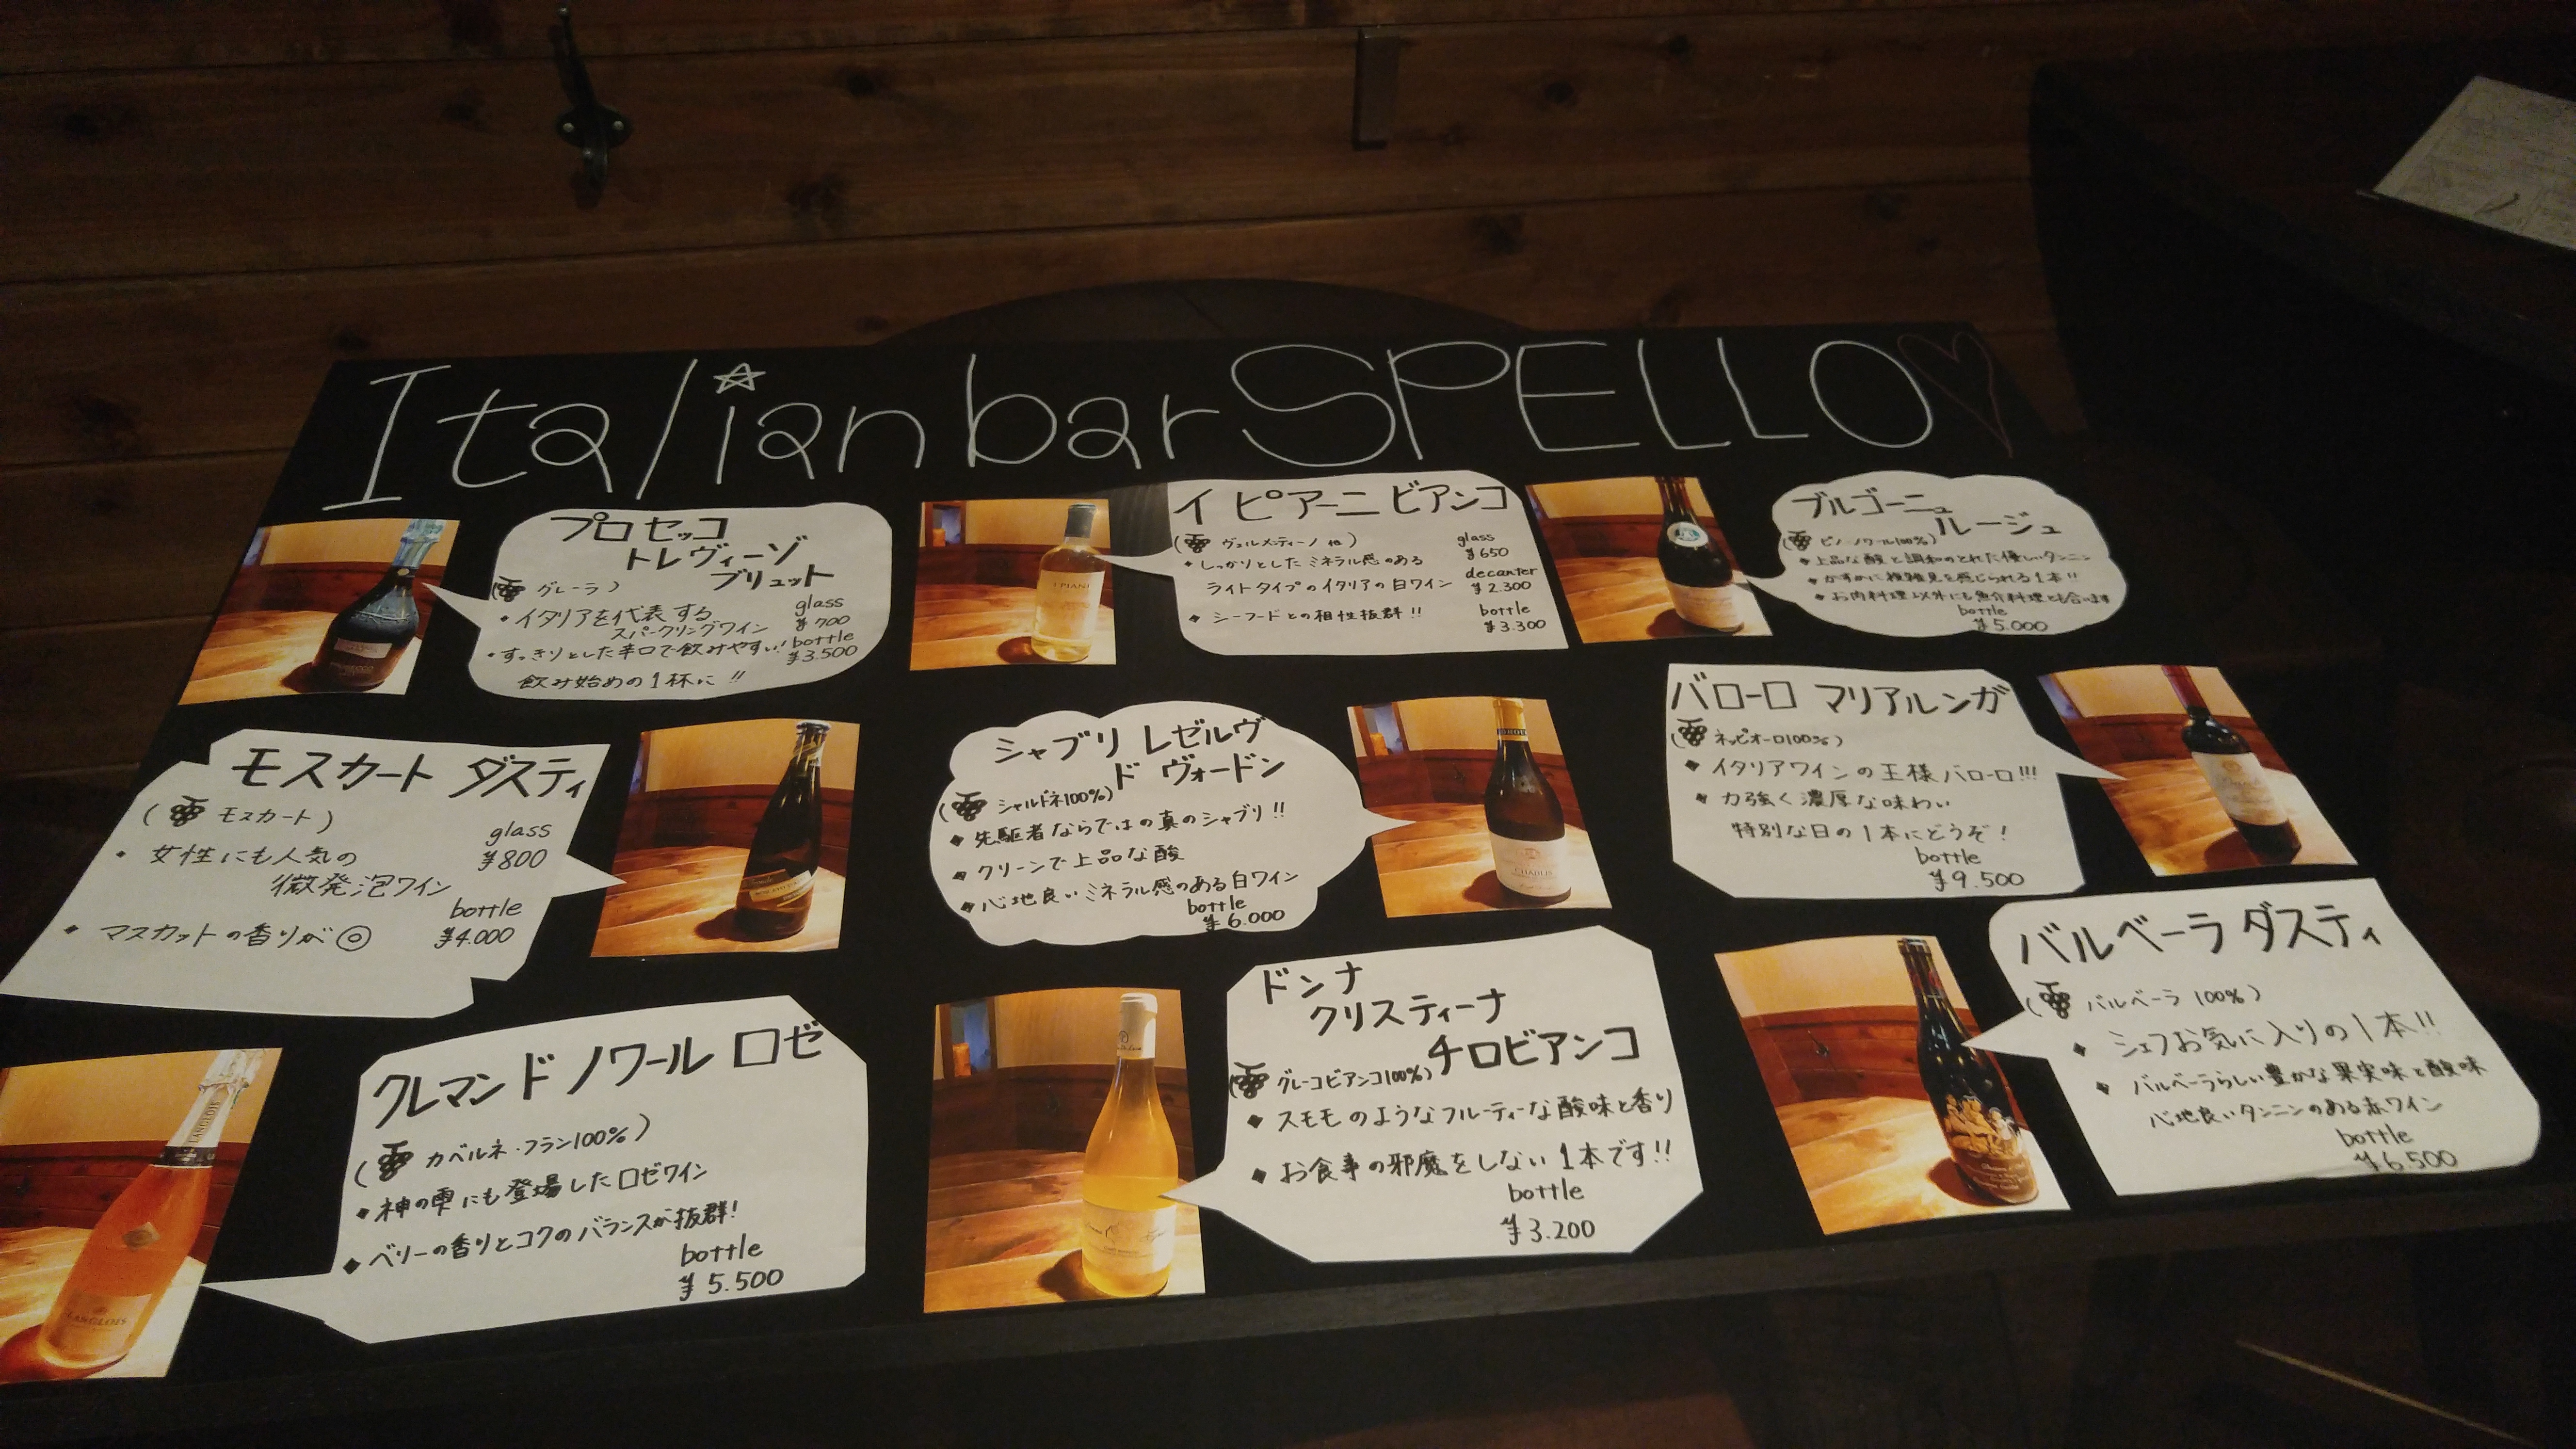 Italian bar SPELLO
プロセッコ
トレヴィーゾ
ブリュット
(グレーラ)
・イタリアを代表する
スパークリングワイン
・すっきりとした辛口で飲みやすい!
飲み始めの1杯に!!
glass
¥700
bottle
¥3.500
イ ピアーニ ビアンコ
(ヴェルメンティーノ 他)
・しっかりとした ミネラル感のある
ライトタイプのイタリアの白ワイン
・シーフードとの相性抜群!!
glass
¥650
decanter
¥2.300
bottle
¥3.300
I PIANI
ブルゴーニュ
ルージュ
(ピノ・ノワール100%)
・上品な酸と調和のとれた優しいタンニン
・かすかに複雑見を感じられる1本!!
・お肉料理以外にも魚介料理とも合います
bottle
¥5.000
モスカート ダスティ
(モスカート)
・女性にも人気の
微発泡ワイン
・マスカットの香りが◎
glass
¥800
bottle
¥4.000
シャブリ レゼルヴ
ド ヴォードン
(シャルドネ100%)
・先駆者ならではの真のシャブリ!!
・クリーンで上品な酸
・心地良いミネラル感のある白ワイン
bottle
¥6.000
CHABLIS
バローロ マリアルンガ
(ネッビオーロ100%)
・イタリアワインの王様バローロ!!!
・力強く濃厚な味わい
特別な日の1本にどうぞ!
bottle
¥9.500
クレマン ド ノワール ロゼ
(カベルネ・フラン100%)
・神の雫にも登場したロゼワイン
・ベリーの香りとコクのバランスが抜群!
bottle
¥5.500
LANGLOIS
LANGLOIS
ドンナ
クリスティーナ
チロビアンコ
(グレーコビアンコ100%)
・スモモのようなフルーティーな酸味と香り
・お食事の邪魔をしない1本です!!
bottle
¥3.200
バルベーラ ダスティ
(バルベーラ 100%)
・シェフお気に入りの1本!!
・バルベーラらしい豊かな果実味と酸味
心地良いタンニンのある赤ワイン
bottle
¥6.500